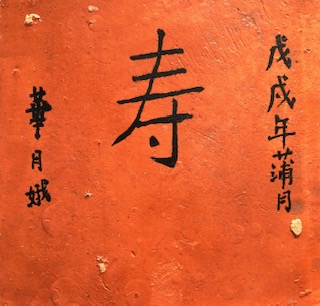 戊戌年蒲月
寿
華月娥